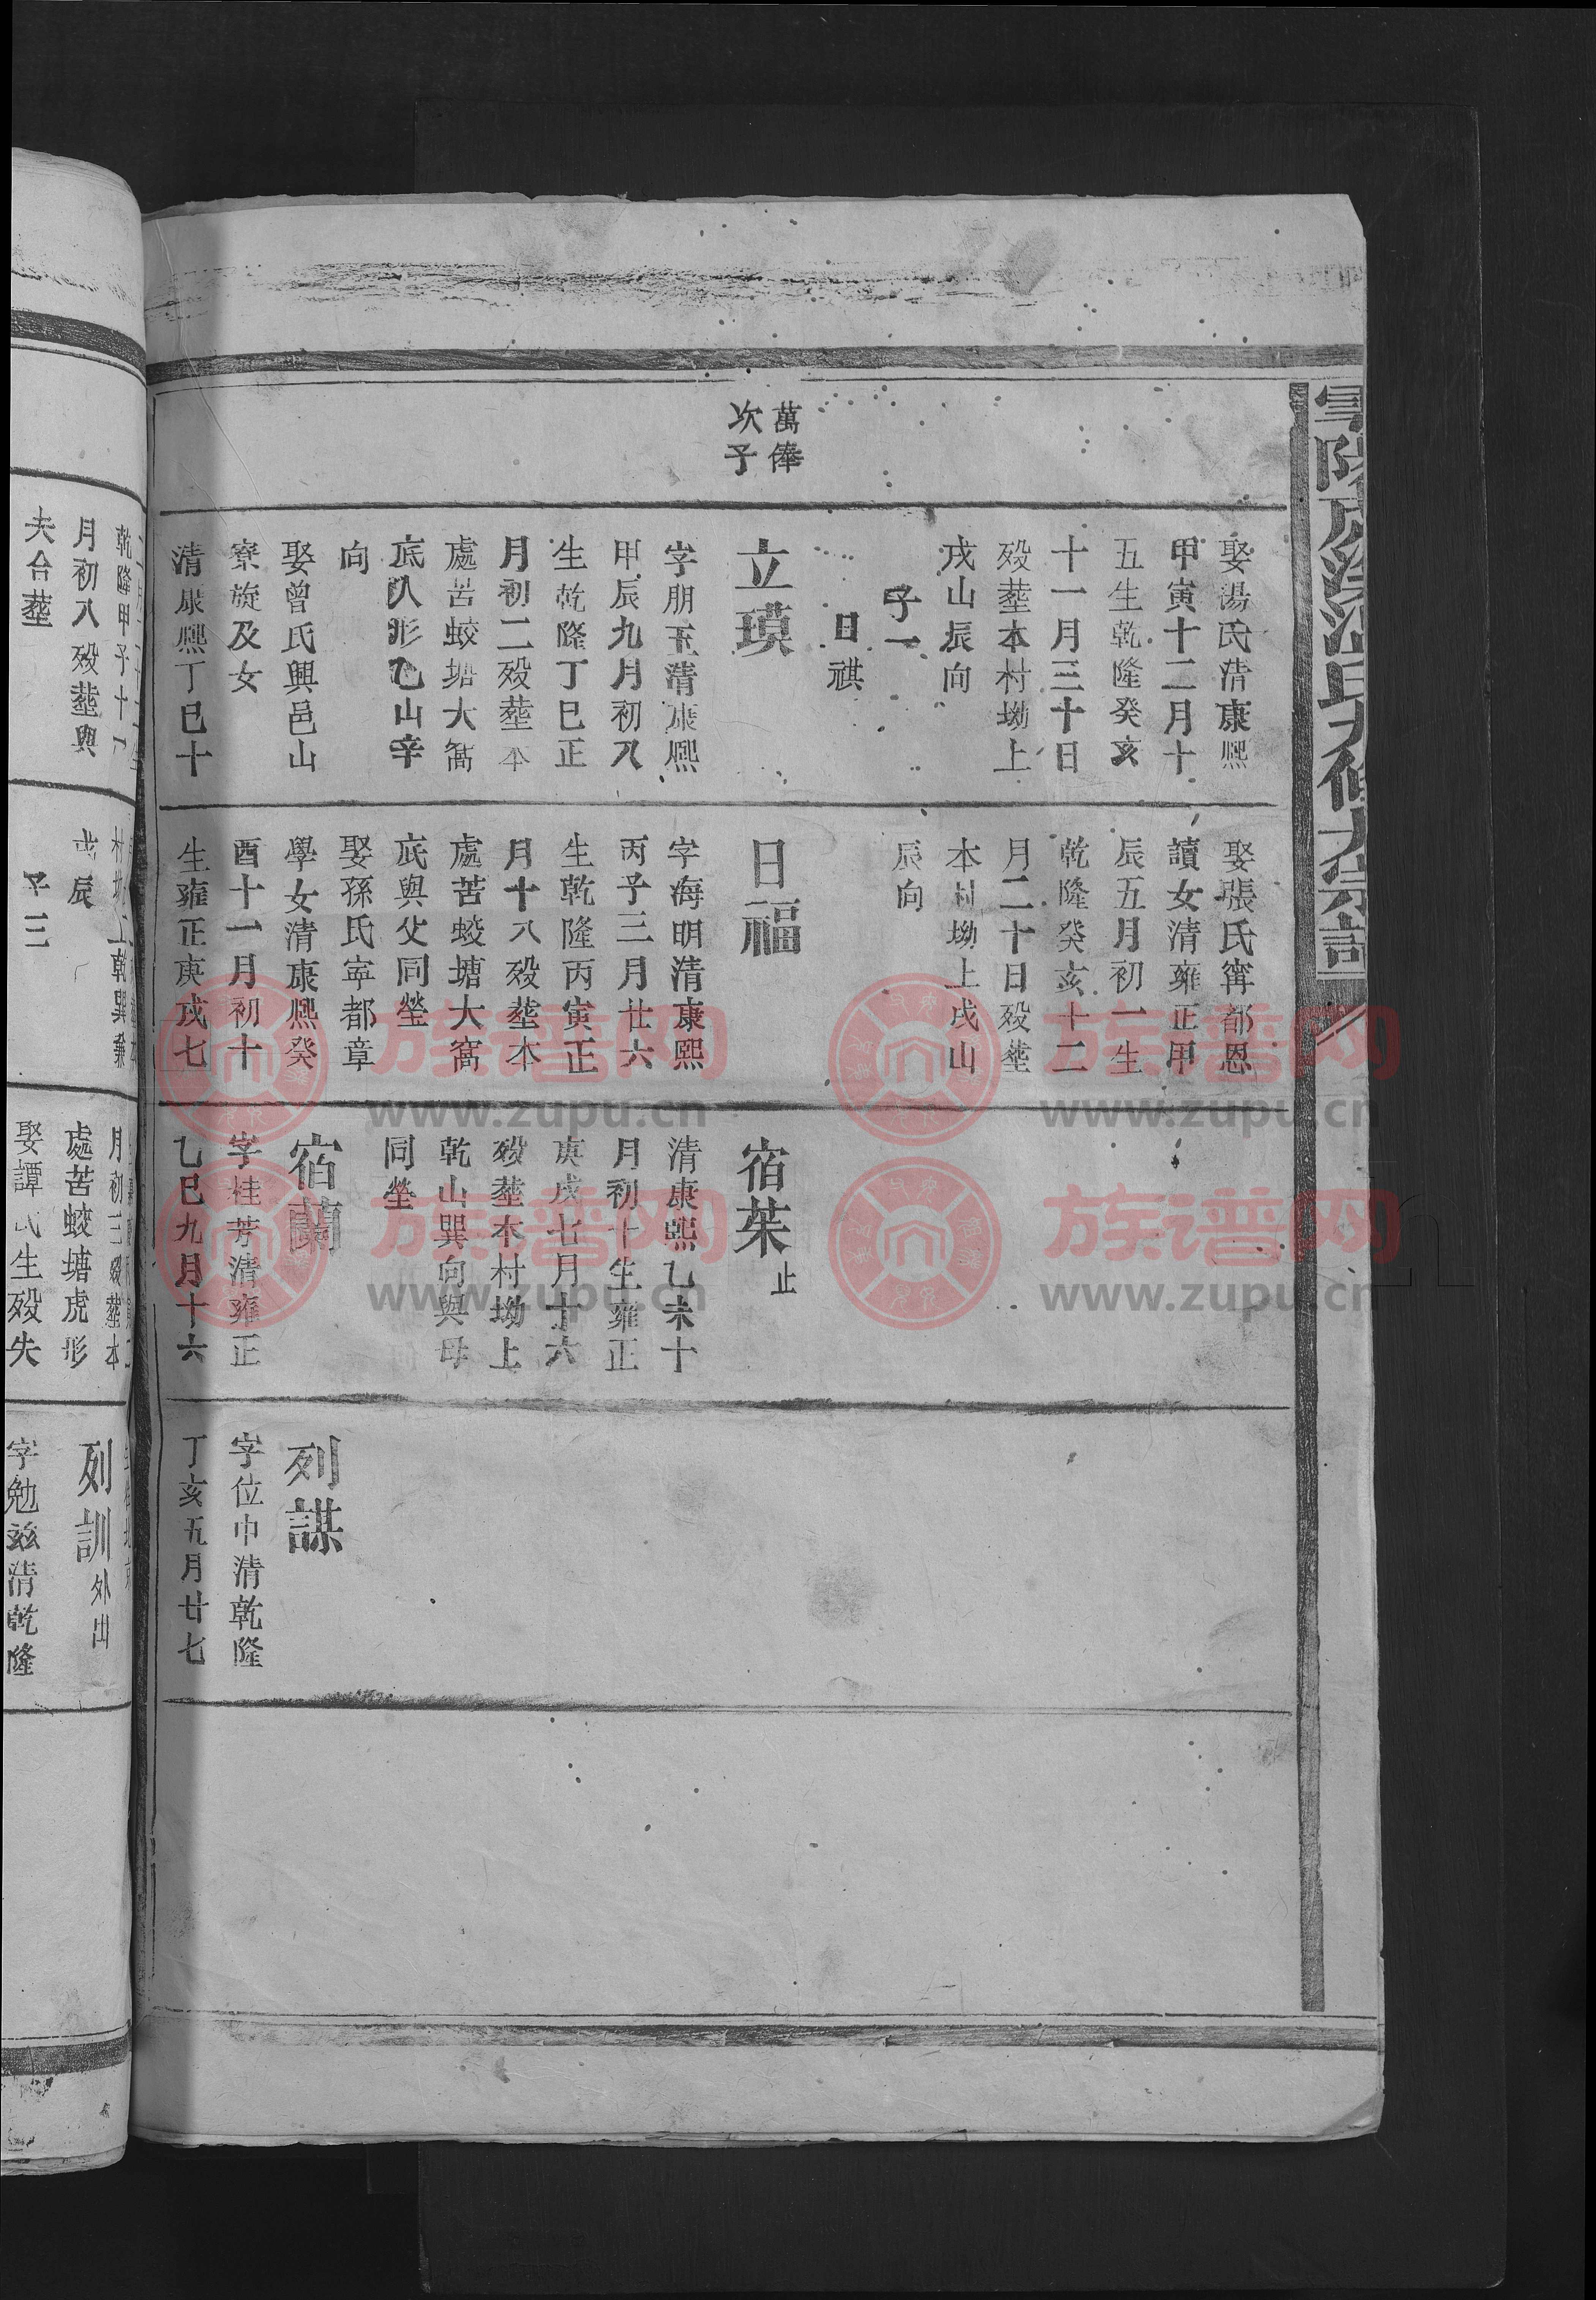 萬俸
次子
娶湯氏清康熙
甲寅十二月十
五生乾隆癸亥
十一月三十日
歿塟本村坳上
戌山辰向
子一
日祺
立瑛
字朋玉清康熙
甲辰九月初八
生乾隆丁巳正
月初二歿塟本
處苦蛟塘大窩
底人形乙山辛
向
娶曾氏興邑山
寮旋及女
清康熙丁巳十
娶張氏甯都恩
讀女清雍正甲
辰五月初一生
乾隆癸亥十二
月二十日歿塟
本村坳上戌山
辰向
日福
字海明清康熙
丙子三月廿六
生乾隆丙寅正
月十八歿塟本
處苦蛟塘大窩
底與父同塋
娶孫氏寧都章
學女清康熙癸
酉十一月初十
生雍正庚戌七
宿茱止
清康熙乙未十
月初十生雍正
庚戌七月十六
歿塟本村坳上
乾山巽向與母
同塋
宿蘭
字桂芳清雍正
乙巳九月十六
列謀
字位中清乾隆
丁亥五月廿七
乾隆甲子十一
月初八歿塟與
夫合塟
戌辰
子三
月初三歿塟本
處苦蛟塘虎形
娶譚氏生歿失
列訓外出
字勉兹清乾隆
族谱网
www.zupu.cn
族谱网
www.zupu.cn
族谱网
www.zupu.cn
族谱网
www.zupu.cn